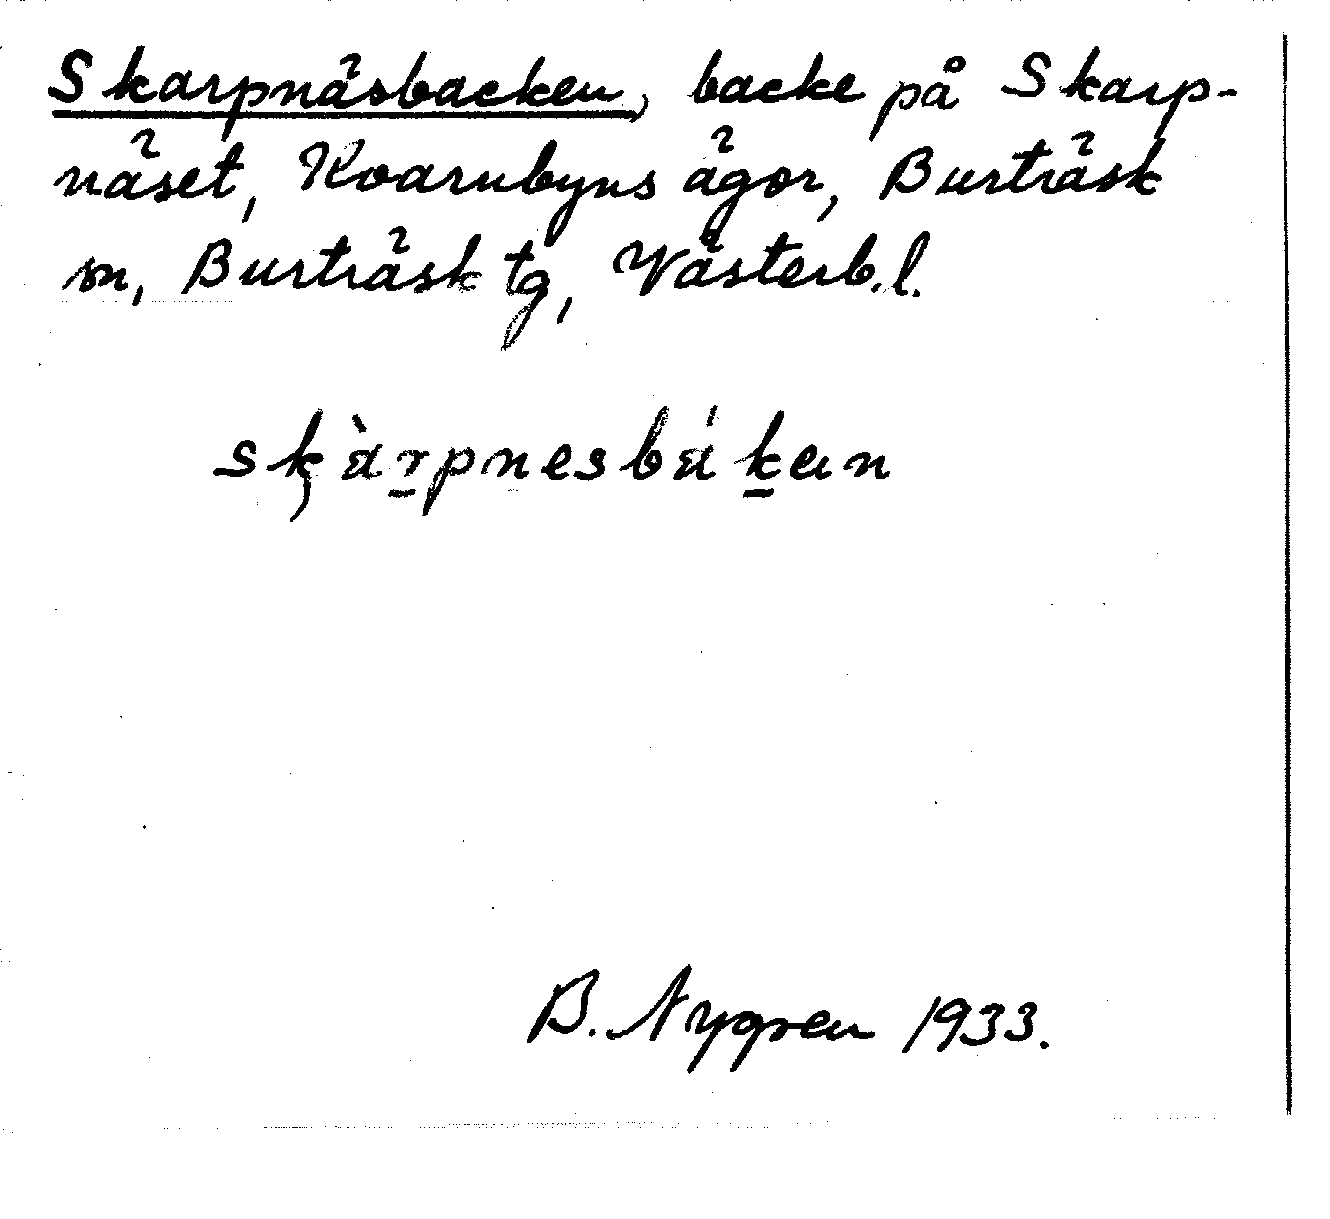 Skarpnäsbacken, backe på Skarp-
näset, Kvarnbyns ägor, Burträsk
sn, Burträsk tg, Västerb.l.
skàrpnesbákan
B. Nygren 1933.